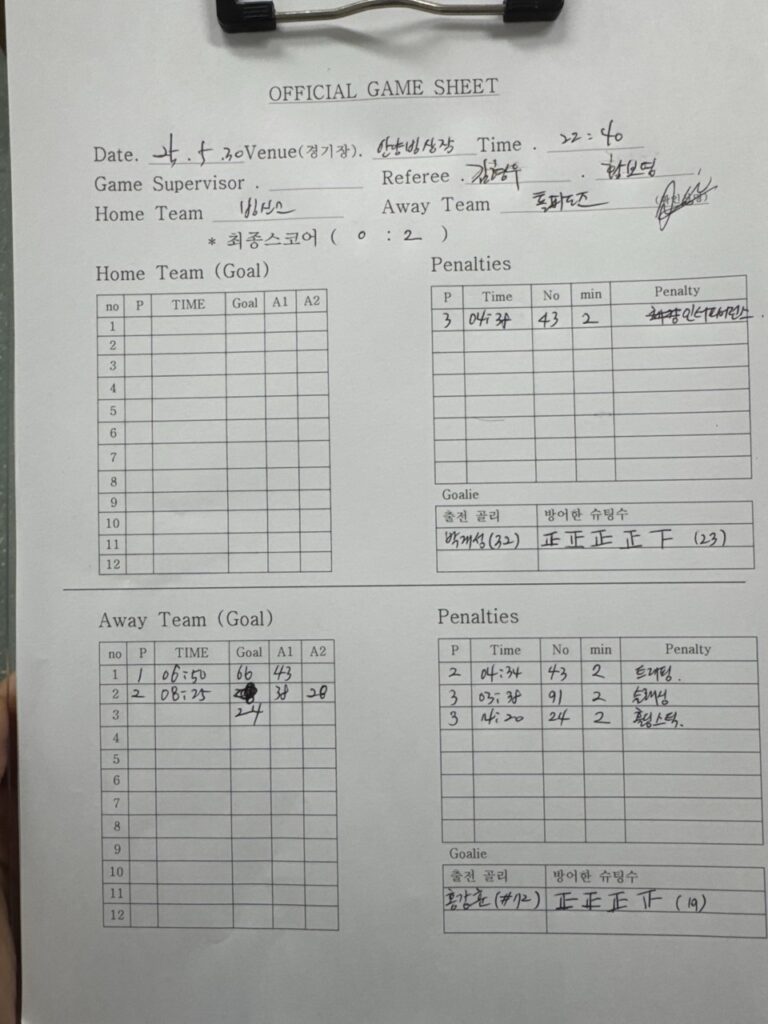 OFFICIAL GAME SHEET
Date. 25. 5. 30 Venue(경기장). 안양빙상장 Time . 22:40
Game Supervisor . Referee . 김형두 . 함보영
Home Team 빙선스 Away Team 돌파도즈
* 최종스코어 ( 0 : 2 )
Home Team (Goal)
no P TIME Goal A1 A2
1
2
3
4
5
6
7
8
9
10
11
12
Penalties
P Time No min Penalty
3 04:38 43 2 인터피어런스.
Goalie
출전 골리 방어한 슈팅수
박재성(32) 正 正 正 正 下 (23)
Away Team (Goal)
no P TIME Goal A1 A2
1 1 06:50 66 43
2 2 08:25 38 28
3 24
4
5
6
7
8
9
10
11
12
Penalties
P Time No min Penalty
2 04:34 43 2 트리핑.
3 03:38 91 2 슬래싱
3 14:20 24 2 홀딩스틱.
Goalie
출전 골리 방어한 슈팅수
홍강훈(#72) 正 正 正 (19)